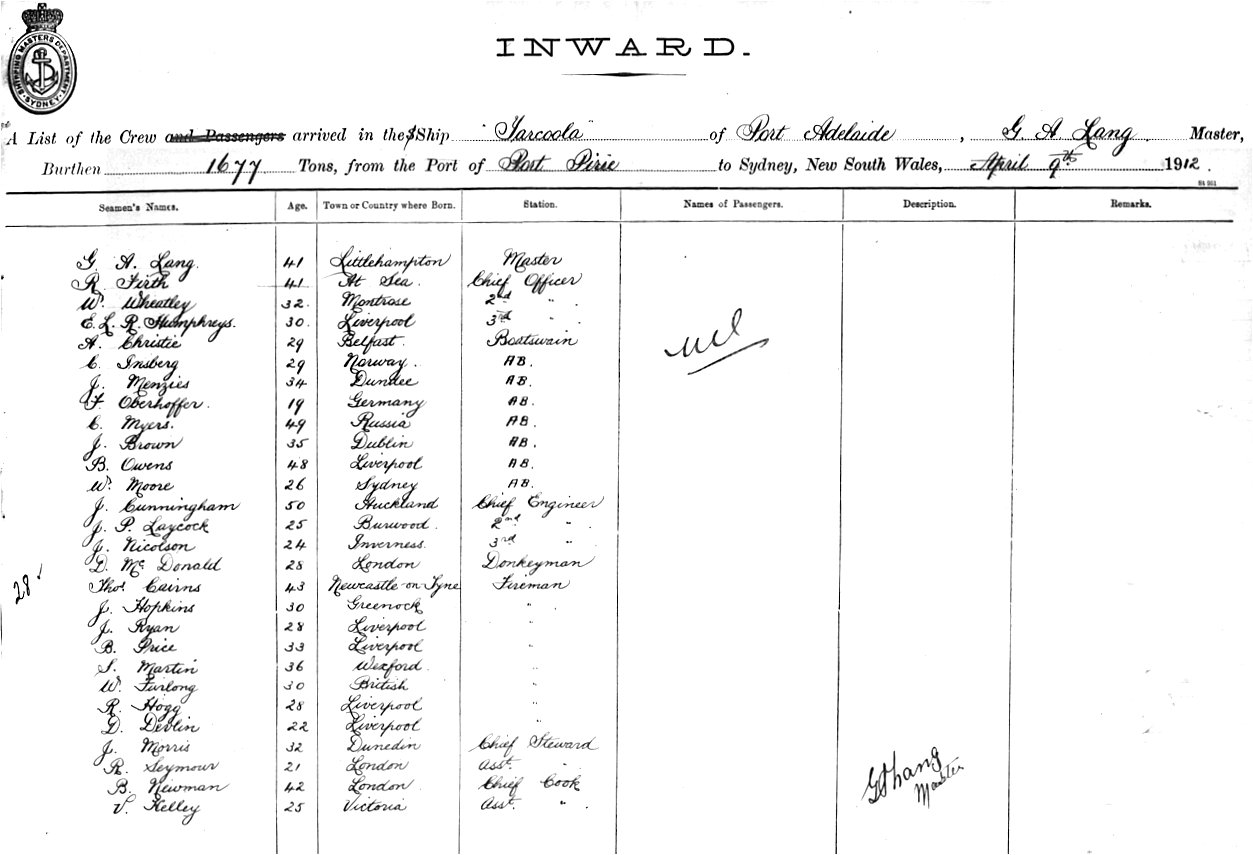 SHIPPING MASTERS DEPARTMENT
SYDNEY
INWARD.
A List of the Crew and Passengers arrived in the S Ship "Tarcoola" of Port Adelaide, G. A Lang Master,
Burthen 1677 Tons, from the Port of Port Pirie to Sydney, New South Wales, April 9th 1912.
Seamen's Names. Age. Town or Country where Born. Station. Names of Passengers. Description. Remarks.
G. A. Lang. 41 Littlehampton Master
R. Firth 41 At Sea. Chief Officer
W. Wheatley 32. Montrose 2nd "
E. L. R. Humphreys. 30. Liverpool 3rd "
A. Christie 29 Belfast. Boatswain
nil
C. Insberg 29 Norway. AB.
J. Menzies 34 Dundee AB.
F. Oberhoffer. 19 Germany AB.
C. Myers. 49 Russia AB.
J. Brown 35 Dublin AB.
B. Owens 48 Liverpool AB.
W. Moore 26 Sydney AB.
J. Cunningham 50 Auckland Chief Engineer
J. P. Laycock 25 Burwood. 2nd "
J. Nicolson 24 Inverness. 3rd "
D. Mc Donald 28 London Donkeyman
28
Thos. Cairns 43 Newcastle-on-Tyne Fireman
J. Hopkins 30 Greenock "
J. Ryan 28 Liverpool "
B. Price 33 Liverpool "
S. Martin 36 Wexford. "
W. Furlong 30 British "
R. Hogg 28 Liverpool "
D. Devlin 22 Liverpool "
J. Morris 32 Dunedin Chief Steward
R. Seymour 21 London Asst. "
B. Newman 42 London Chief Cook
V. Kelley 25 Victoria Asst. "
G A Lang
Master